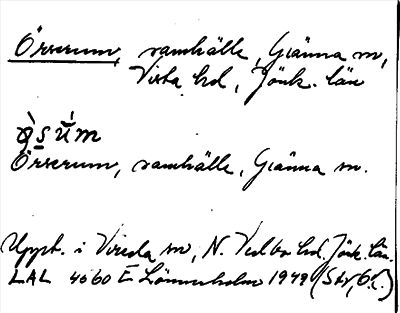 Örserum, samhälle, Gränna sn,
Vista hd, Jönk. län
Örserum, samhälle, Gränna sn.
Uppt. i Vireda sn, N. Vedbo hd. Jönk. län.
LAL 4060 E Lönnerholm 1949 (Str,